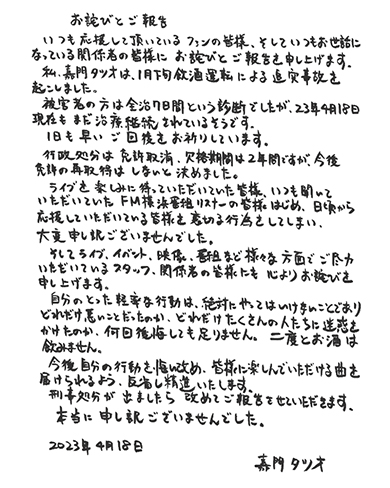 お詫びとご報告
いつも応援して頂いているファンの皆様、そしていつもお世話に
なっている関係者の皆様に お詫びとご報告を申し上げます。
私、嘉門タツオは、1月下旬飲酒運転による追突事故を
起こしました。
被害者の方は全治7日間という診断でしたが、23年4月18日
現在もまだ治療継続されているそうです。
1日も早い ご回復をお祈りしています。
行政処分は免許取消、欠格期間は2年間ですが、今後
免許の再取得はしないと決めました。
ライブを楽しみに待っていただいていた皆様、いつも聞いて
いただいていたFM横浜番組リスナーの皆様はじめ、日頃から
応援していただいている皆様を裏切る行為をしてしまい、
大変申し訳ございませんでした。
そしてライブ、イベント、映像、番組など様々な方面でご尽力
いただいているスタッフ、関係者の皆様にも心よりお詫びを
申し上げます。
自分のとった軽率な行動は、絶対にやってはいけないことであり
どれだけ悪いことだったのか、どれだけたくさんの人たちに迷惑を
かけたのか、何回後悔しても足りません。二度とお酒は
飲みません。
今後自分の行動を悔い改め、皆様に楽しんでいただける曲を
届けられるよう、反省し精進いたします。
刑事処分が出ましたら 改めてご報告させていただきます。
本当に申し訳ございませんでした。
2023年4月18日
嘉門タツオ